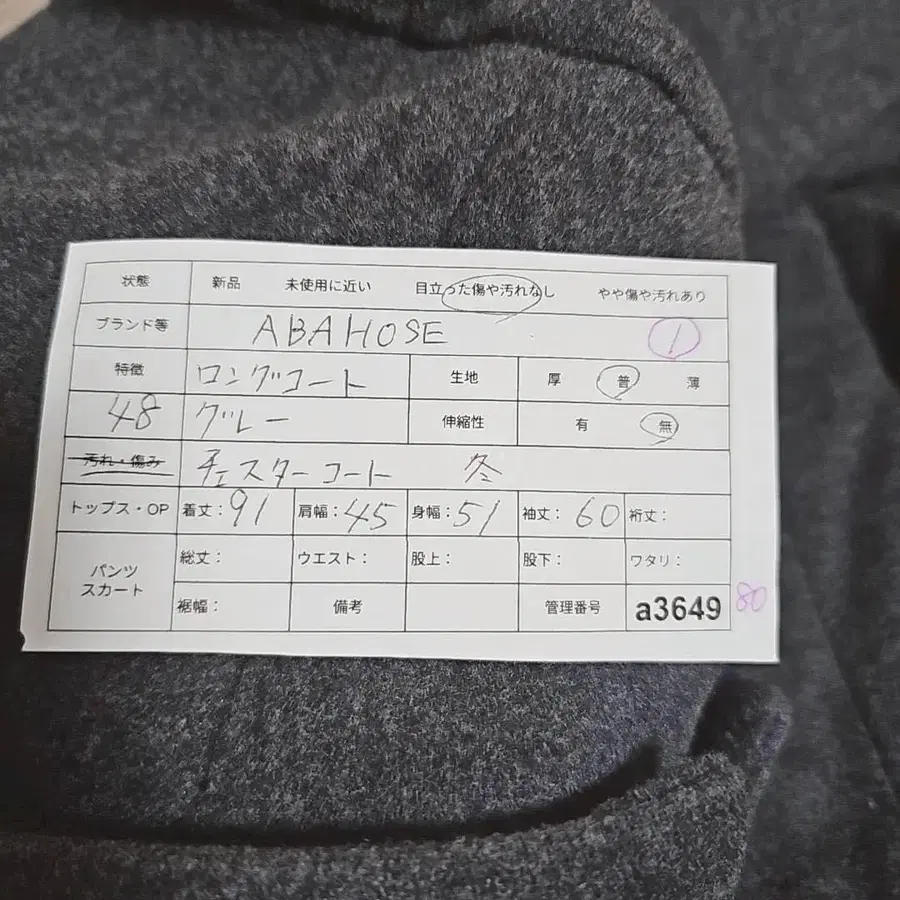 状態 新品 未使用に近い 目立った傷や汚れなし やや傷や汚れあり
ブランド等 ABAHOSE 1
特徴 ロングコート 生地 厚 普 薄
48 グレー 伸縮性 有 無
汚れ・傷み チェスターコート 冬
トップス・OP 着丈:91 肩幅:45 身幅:51 袖丈:60 裄丈:
パンツ スカート 総丈: ウエスト: 股上: 股下: ワタリ:
裾幅: 備考 管理番号 a3649 80